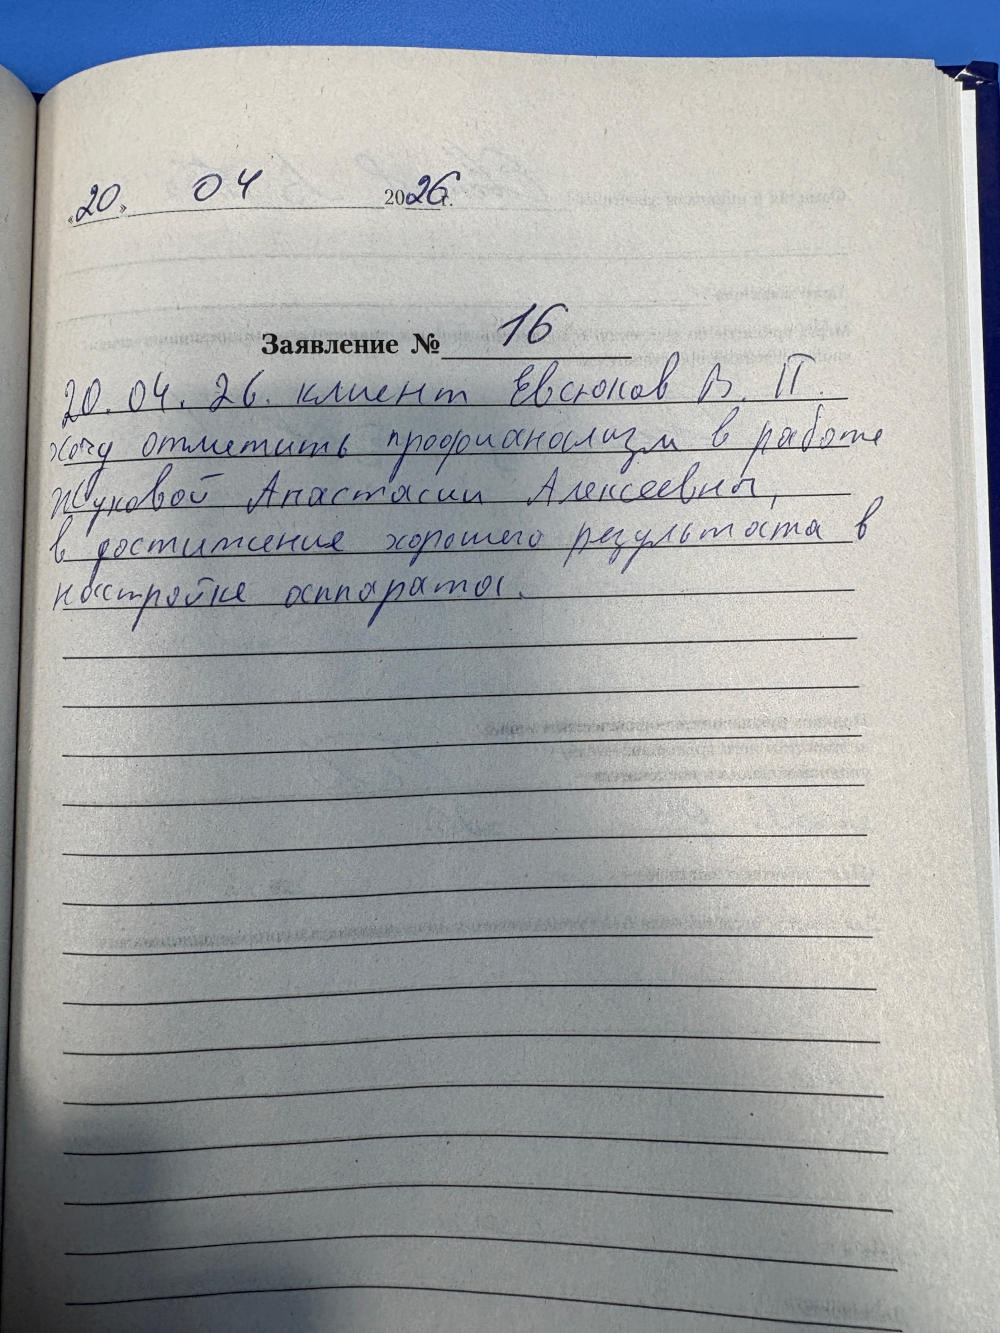 «20» 04 2026г.
Заявление № 16
20.04.26. клиент Евсюков В. П.
хочу отметить профианализм в работе
Жуковой Анастасии Алексеевны,
в достижение хорошего результата в
настройке аппарата.